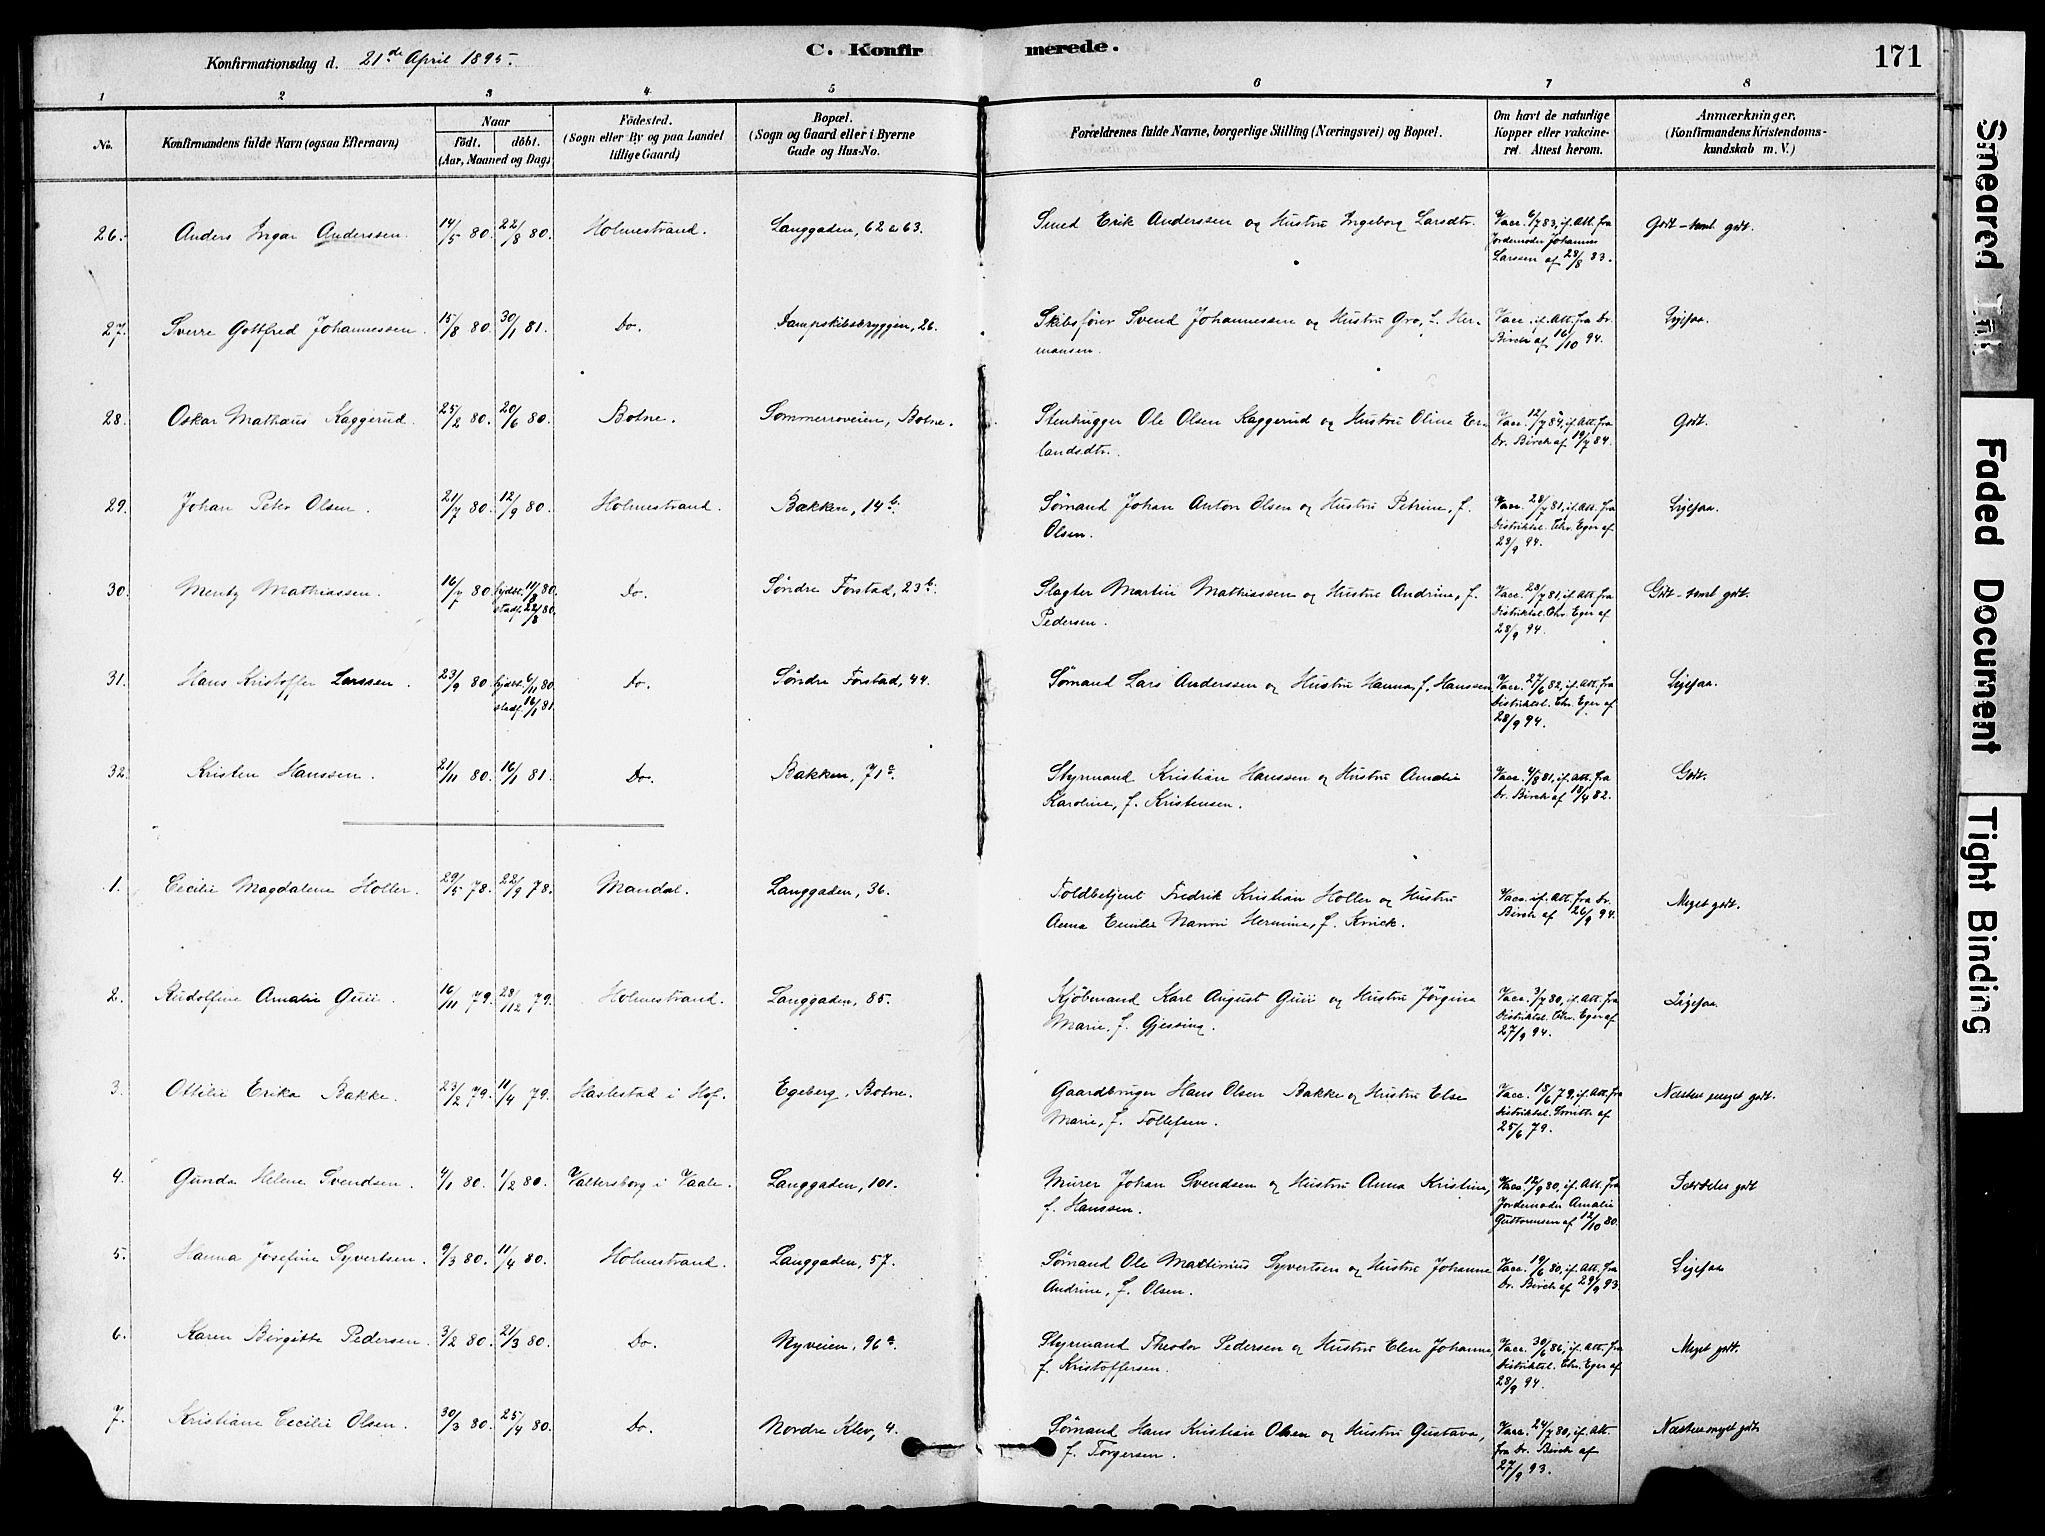 C. Konfirmerede.
171
Konfirmationsdag d. 21de April 1895.
1 2 3 4 5 6 7 8
No. Konfirmandens fulde Navn (ogsaa Efternavn) Naar födt. döbt. (Aar, Maaned og Dag) Födested. (Sogn eller By og paa Landet tillige Gaard) Bopæl. (Sogn og Gaard eller i Byerne Gade og Hus-No. Forældrenes fulde Navne, borgerlige Stilling (Næringsvei) og Bopæl. Om havt de naturlige Kopper eller vakcineret. Attest herom. Anmærkninger. (Konfirmandens Kristendomskundskab m. V.)
26. Anders Ingar Anderssen. 14/5 80. 22/8 80. Holmestrand. Langgaden, 62 & 63. Smed Erik Anderssen og Hustru Ingeborg Larsdtr. Vacc. 6/7 83, if. Att. fra
Jordemoder Johannes
Larssen af 28/8 83. Godt - teml. godt.
27. Sverre Gottfred Johannessen. 15/8 80. 30/1 81. Do. Dampskibsbryggen, 26. Skibsfører Svend Johannessen og Hustru Gro, f. Her-
mansen. Vacc. if. Att. fra Dr.
Birch af 16/10 94. Ligesaa.
28. Oskar Mathæus Kaggerud. 25/2 80. 20/6 80. Botne. Sommerroveien, Botne. Stenhugger Ole Olsen Kaggerud og Hustru Oline Er-
landsdtr. Vacc. 12/7 84, if. Att. fra
Dr. Birch af 19/7 84. Godt.
29. Johan Peter Olsen. 21/7 80. 12/9 80. Holmestrand. Bakken, 14b. Sømand Johan Anton Olsen og Hustru Petrine, f.
Olsen. Vacc. 28/7 81, if. Att. fra
Distriktsl. Chr. Eger af
28/9 94. Ligesaa.
30. Mentz Mathiassen. 16/7 80. hjdbt. 11/8 80.
stadf. 22/8 80. Do. Søndre Forstad, 23b. Slagter Martin Mathiassen og Hustru Andrine, f.
Pedersen. Vacc. 28/7 81, if. Att. fra
Distriktsl. Chr. Eger af
28/9 94. Godt - teml. godt.
31. Hans Kristoffer Larssen. 23/9 80. hjdbt. 6/11 80.
stadf. 16/1 81. Do. Søndre Forstad, 44. Sømand Lars Anderssen og Hustru Hanna, f. Hanssen. Vacc. 27/6 82, if. Att. fra
Distriktsl. Chr. Eger af
28/9 94. Ligesaa.
32. Kristen Hanssen. 21/11 80. 16/1 81. Do. Bakken, 71a. Styrmand Kristian Hanssen og Hustru Amalie
Karoline, f. Kristensen. Vacc. 4/8 81, if. Att. fra
Dr. Birch af 18/4 82. Godt.
1. Cecilie Magdalene Holler. 29/5 78. 22/9 78. Mandal. Langgaden, 36. Toldbetjent Fredrik Kristian Holler og Hustru
Anna Emilie Nanni Hermine, f. Knick. Vacc. if. Att. fra Dr.
Birch af 26/9 94. Meget godt.
2. Rudolfine Amalie Guii. 16/11 79. 28/12 79. Holmestrand. Langgaden, 85. Kjøbmand Karl August Guii og Hustru Jørgine
Marie, f. Gjessing. Vacc. 3/7 80, if. Att. fra
Distriktsl. Chr. Eger af
27/9 94. Ligesaa.
3. Ottilie Erika Bakke. 23/2 79. 11/4 79. Haslestad i Hof. Egeberg, Botne. Gaardbruger Hans Olsen Bakke og Hustru Else
Marie, f. Tollefsen. Vacc. 18/6 79, if. Att. fra
Distriktsl. Smith af
25/6 79. Næsten meget godt.
4. Gunda Helene Svendsen. 4/1 80. 1/2 80. Valtersborg i Vaale. Langgaden, 101. Murer Johan Svendsen og Hustru Anna Kristine,
f. Hanssen. Vacc. 12/9 80, if. Att. fra
Jordemoder Amalie
Guttormsen af 12/10 80. Særdeles godt
5. Hanna Josefine Syvertsen. 9/3 80. 11/4 80. Holmestrand. Langgaden, 57. Sømand Ole Martinius Syvertsen og Hustru Johanne
Andrine, f. Olsen. Vacc. 19/6 80, if. Att. fra
Dr. Birch af 29/9 93. Ligesaa
6. Karen Birgitte Pedersen. 3/2 80. 21/3 80. Do. Nyveien, 96a. Styrmand Theodor Pedersen og Hustru Elen Johanne,
f. Kristoffersen. Vacc. 30/6 86, if. Att. fra
Distriktsl. Chr. Eger af
28/9 94. Meget godt.
7. Kristiane Cecilie Olsen. 30/3 80. 25/4 80. Do. Nordre Klev, 4. Sømand Hans Kristian Olsen og Hustru Gustava,
f. Torgersen. Vacc. 24/7 80, if. Att.
fra Dr. Birch af
27/9 93. Næsten meget godt
Smeared Ink
Faded Document
Tight Binding